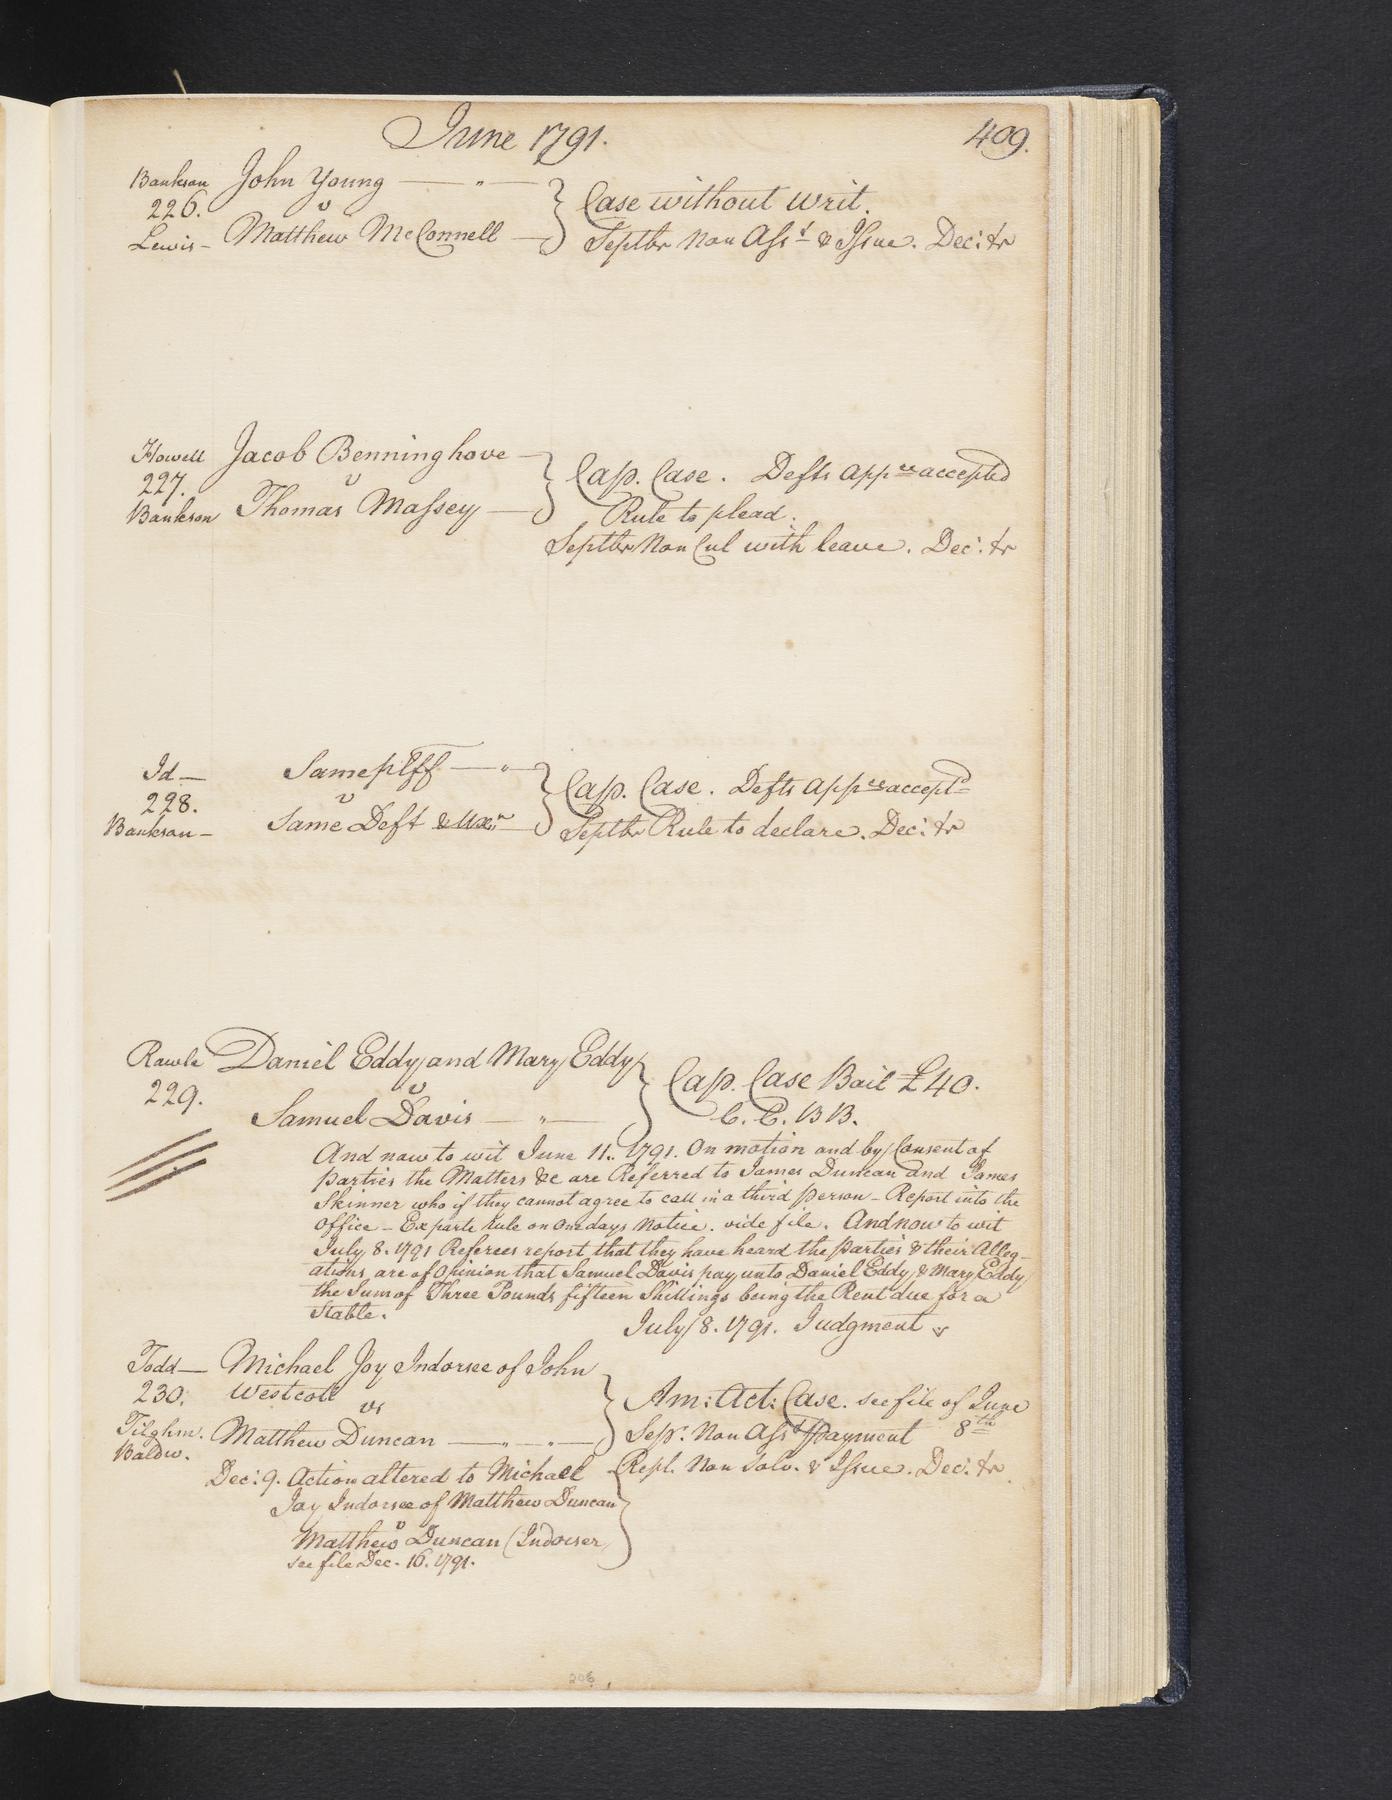 June 1791.
409.
Bankson John Young
226. v
Lewis Matthew McConnell
Case without writ.
Septbr Non Asst & Issue. Dec: &r
Howell Jacob Benninghove
227. v
Bankson Thomas Massey
Cap. Case. Defts appce accepted
Rule to plead.
Septbr Non Cul with leave. Dec: &r
Id Same plff
228. v
Bankson Same Deft & Uxr
Cap. Case. Defts appce acceptd
Septbr Rule to declare. Dec: &r
Rawle Daniel Eddy and Mary Eddy
229. v
Samuel Davis
Cap. Case Bail £40.
C. C. BB.
And now to wit June 11. 1791. On motion and by Consent of
parties the Matters &c are Referred to James Duncan and James
Skinner who if they cannot agree to call in a third person - Report into the
office - Ex parte rule on one days Notice. vide file. And now to wit
July 8. 1791 Referees report that they have heard the parties & their Alleg-
ations are of Opinion that Samuel Davis pay unto Daniel Eddy & Mary Eddy
the Sum of Three Pounds fifteen Shillings being the Rent due for a
Stable.
July 8. 1791. Judgment
Todd Michael Joy Indorsee of John
230. Westcott vs
Tilghm. Matthew Duncan
Baldw.
Am: Act: Case. see file of June
Sepr. Non Asst payment 8th
Repl. Non Solv. & Issue. Dec: &r
Dec: 9. Action altered to Michael
Joy Indorsee of Matthew Duncan
v
Matthew Duncan (Indorser
see file Dec. 16. 1791.
206